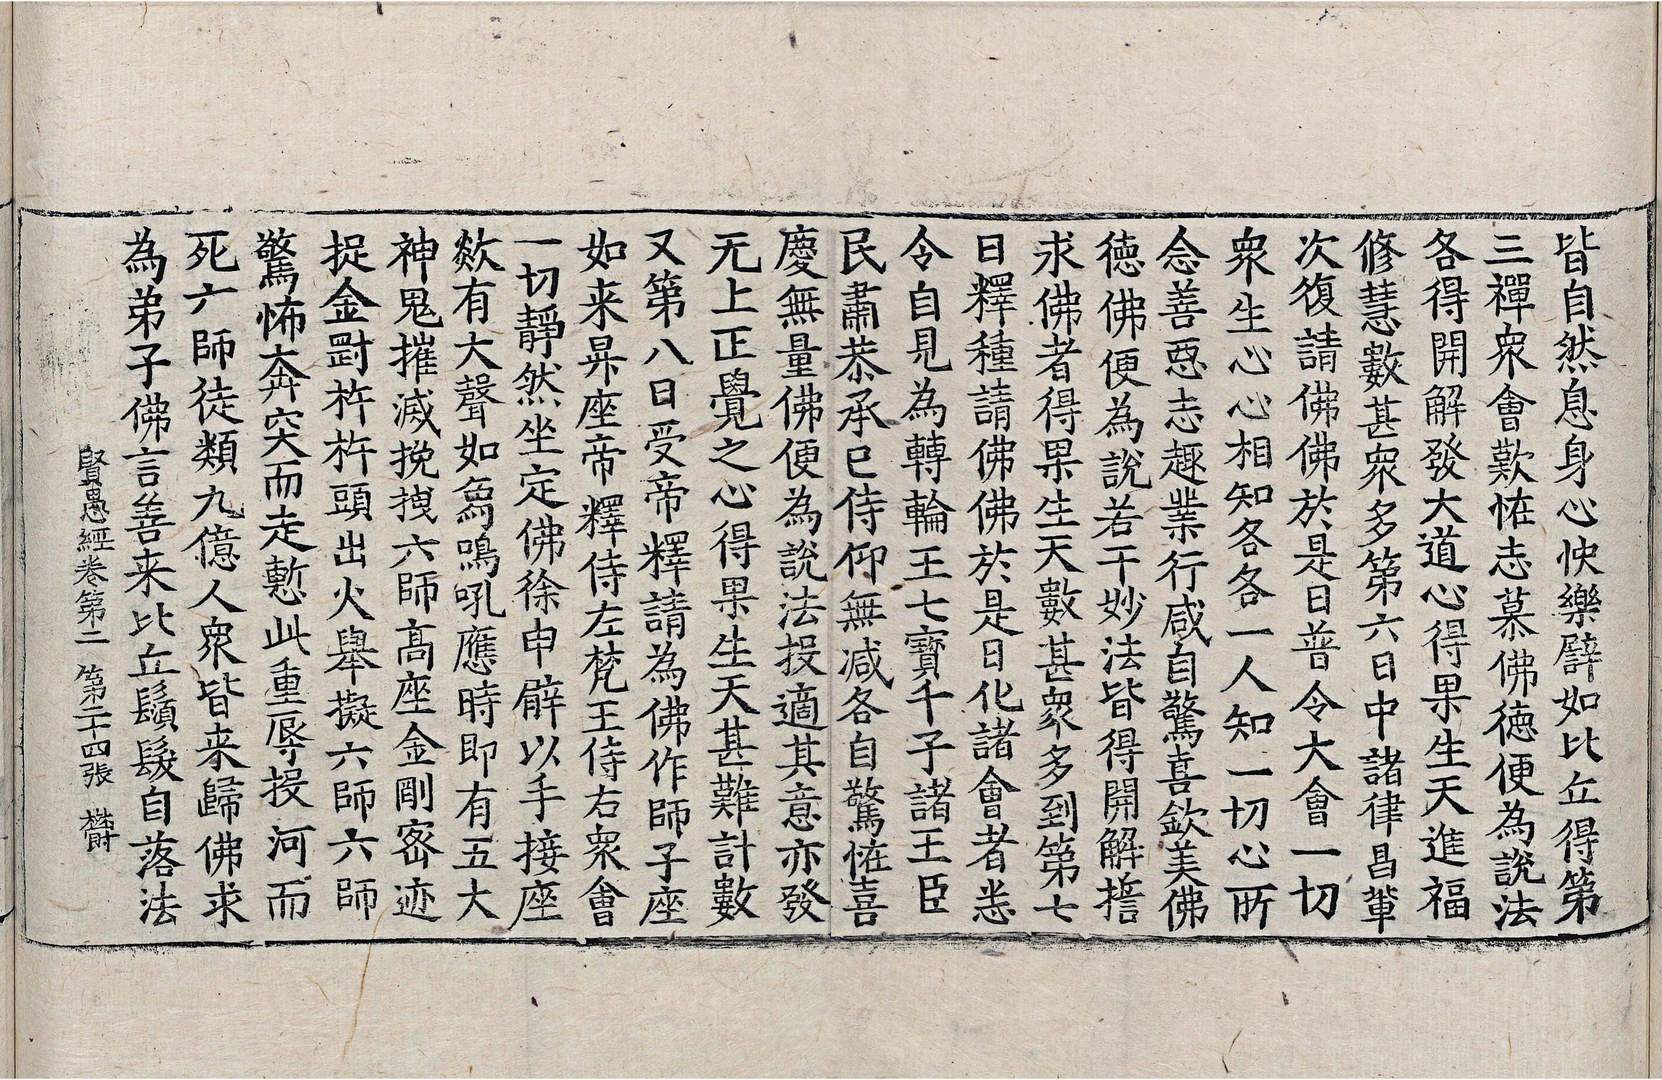 皆自然息身心快樂譬如比丘得第
三禪衆會歎恠志慕佛德便為說法
各得開解發大道心得果生天進福
修慧數甚衆多第六日中諸律昌輩
次復請佛佛於是日普令大會一切
衆生心心相知各各一人知一切心所
念善惡志趣業行咸自驚喜欽羙佛
德佛便為說若干妙法皆得開解擔
求佛者得果生天數甚衆多到第七
日釋種請佛佛於是日化諸會者悉
令自見為轉輪王七寶千子諸王臣
民肅恭承已侍仰無减各自驚恠喜
慶無量佛便為說法投適其意亦發
无上正覺之心得果生天甚難計數
又第八日受帝釋請為佛作師子座
如来昇座帝釋侍左梵王侍右衆會
一切靜然坐定佛徐申臂以手接座
欻有大聲如象鳴吼應時即有五大
神鬼摧滅挽拽六師高座金剛密迹
捉金剛杵杵頭出火舉擬六師六師
驚怖奔突而走慙此重辱投河而
死六師徒類九億人衆皆来歸佛求
為弟子佛言善来比丘鬚髮自落法
賢愚經卷第二 第二十四張 欝